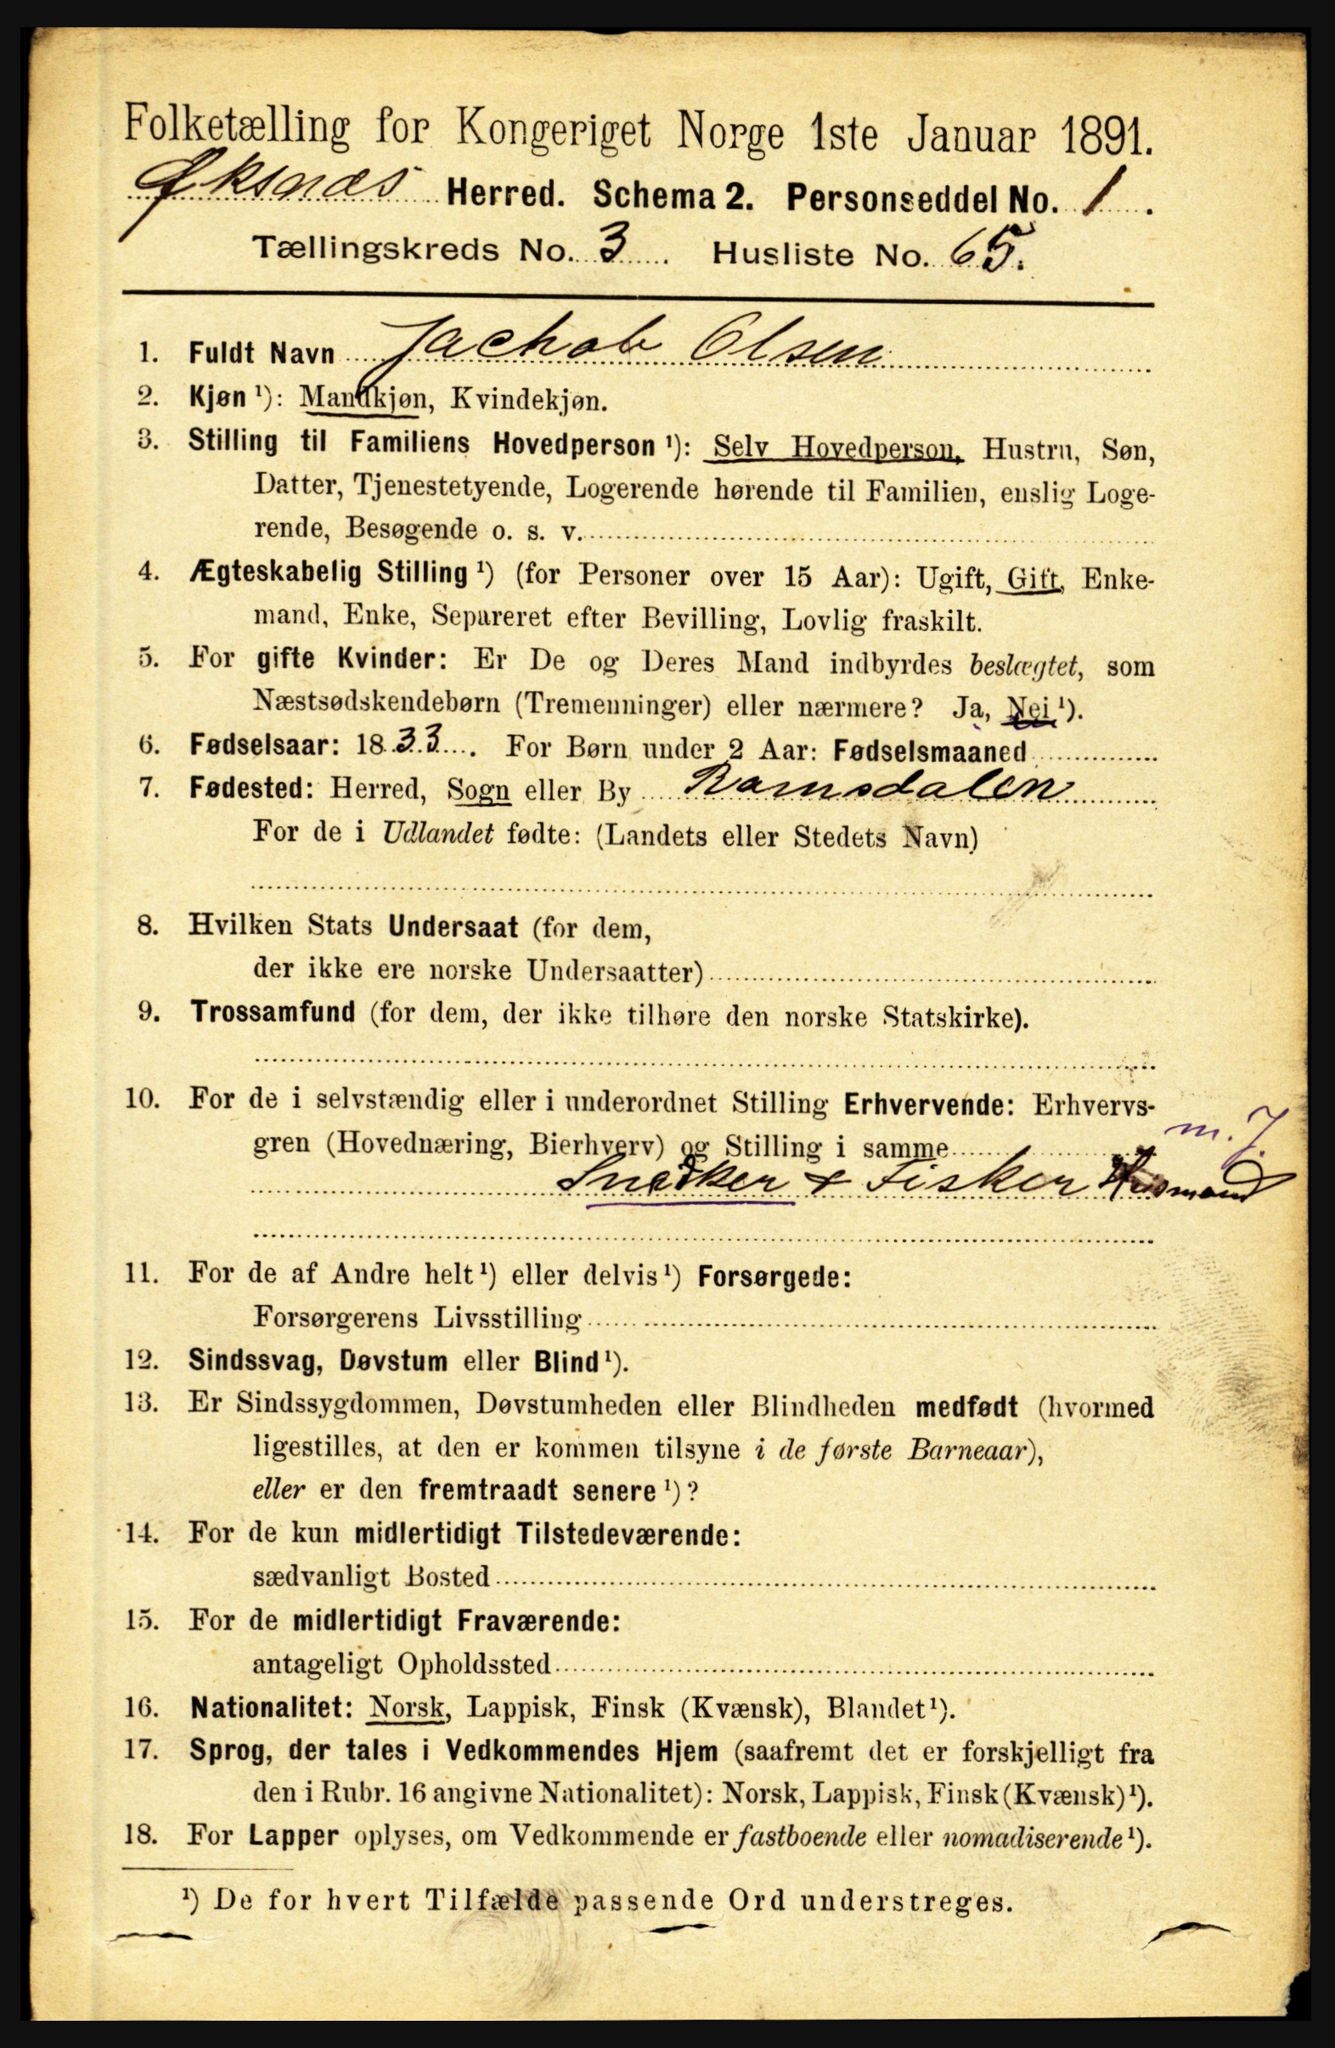 Folketælling for Kongeriget Norge 1ste Januar 1891.
Øksnæs Herred. Schema 2. Personseddel No. 1.
Tællingskreds No. 3. Husliste No. 65.
1. Fuldt Navn Jachob Olsen
2. Kjøn ¹): Mandkjøn, Kvindekjøn.
3. Stilling til Familiens Hovedperson ¹): Selv Hovedperson, Hustru, Søn,
Datter, Tjenestetyende, Logerende hørende til Familien, enslig Loge-
rende, Besøgende o. s. v.
4. Ægteskabelig Stilling ¹) (for Personer over 15 Aar): Ugift, Gift, Enke-
mand, Enke, Separeret efter Bevilling, Lovlig fraskilt.
5. For gifte Kvinder: Er De og Deres Mand indbyrdes beslægtet, som
Næstsødskendebørn (Tremenninger) eller nærmere? Ja, Nei ¹).
6. Fødselsaar: 1833. For Børn under 2 Aar: Fødselsmaaned
7. Fødested: Herred, Sogn eller By Ramsdalen
For de i Udlandet fødte: (Landets eller Stedets Navn)
8. Hvilken Stats Undersaat (for dem,
der ikke ere norske Undersaatter)
9. Trossamfund (for dem, der ikke tilhøre den norske Statskirke).
10. For de i selvstændig eller i underordnet Stilling Erhvervende: Erhvervs-
gren (Hovednæring, Bierhverv) og Stilling i samme m. J.
Snedker & Fisker Husmand
11. For de af Andre helt ¹) eller delvis ¹) Forsørgede:
Forsørgerens Livsstilling
12. Sindssvag, Døvstum eller Blind ¹).
13. Er Sindssygdommen, Døvstumheden eller Blindheden medfødt (hvormed
ligestilles, at den er kommen tilsyne i de første Barneaar),
eller er den fremtraadt senere ¹)?
14. For de kun midlertidigt Tilstedeværende:
sædvanligt Bosted
15. For de midlertidigt Fraværende:
antageligt Opholdssted
16. Nationalitet: Norsk, Lappisk, Finsk (Kvænsk), Blandet ¹).
17. Sprog, der tales i Vedkommendes Hjem (saafremt det er forskjelligt fra
den i Rubr. 16 angivne Nationalitet): Norsk, Lappisk, Finsk (Kvænsk) ¹).
18. For Lapper oplyses, om Vedkommende er fastboende eller nomadiserende ¹).
¹) De for hvert Tilfælde passende Ord understreges.